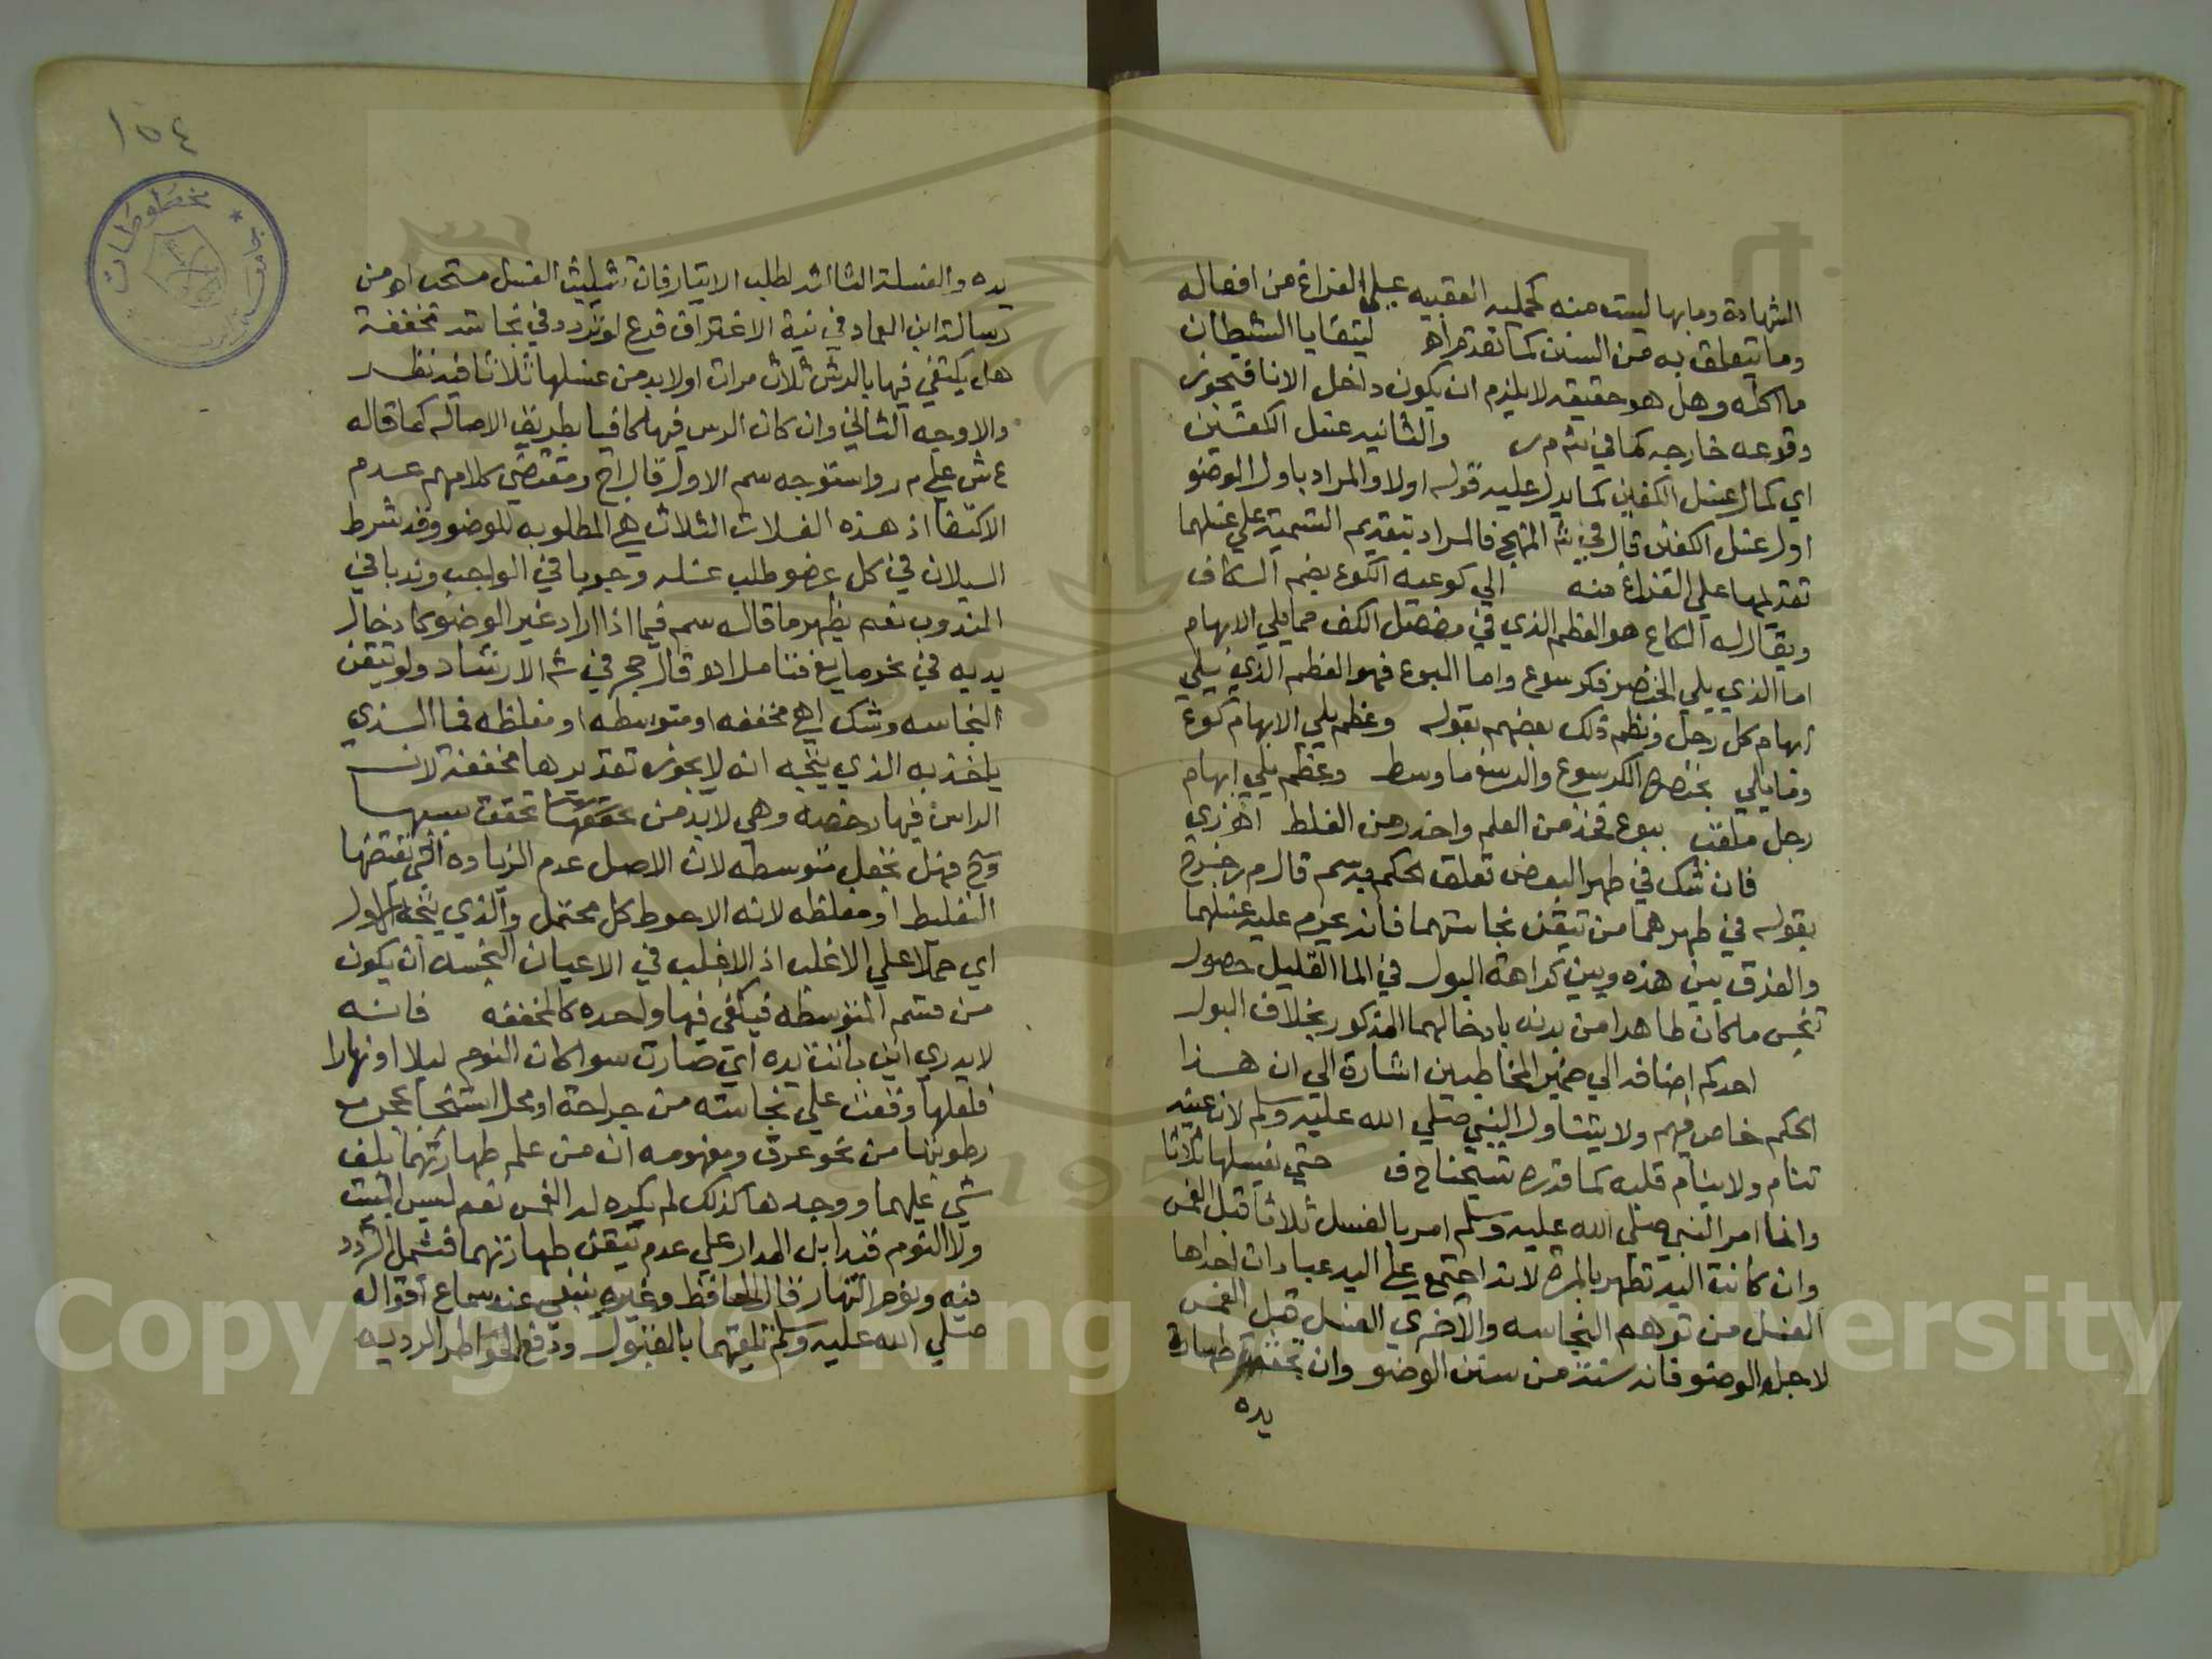 الشهادة وما بها ليست منه كحمليه العقبيه علي الفراغ من افعاله
وما يتعلق به من السنن كما تقدم اه ليتقايا الشيطان
ما اكله وهل هو حقيقه لا يلزم ان يكون داخل الانا فيجوز
وقوعه خارجه كما في شم ر والثانيه غسل الكفين
اي كمال غسل الكفين كما يدل عليه قوله اولا والمراد باول الوضو
اول غسل الكفين قال في شه المنهج فالمراد بتقديم التسمية علي غسلهما
تقديمها علي الفراغ منه الي كوعيه الكوع بضم الكاف
ويقال له الكاع هو العظم الذي في مفصل الكف مما يلي الابهام
اما الذي يلي الخنصر فكرسوع واما البوع فهو العظم الذي يلي
ابهام كل رجل ونظم ذلك بعضهم بقوله وعظم يلي الابهام كوع
وما يلي بخنصره الكرسوع والرسغ ما وسط وعظم يلي ابهام
رجل ملقب ببوع فخذ من العلم واحذر من الغلط اه زي
فان شك في طهر البعض تعلق الحكم به سم قال م ر خرج
بقوله في طهرهما من تيقن نجاستهما فانه يحرم عليه غسلهما
والفرق بين هذه وبين كراهة البول في الما القليل حصول
تنجس ما كان طاهرا من بدنه بادخالهما المذكور بخلاف البول
احدكم اضافه الي ضمير المخاطبين اشارة الي ان هذا
الحكم خاص بهم ولا يتناول النبي صلي الله عليه وسلم لانه عينه
تنام ولا ينام قلبه كما قدره شيخنا ح ف حتي يغسلها ثلاثا
وانما امر النبي صلي الله عليه وسلم امر بالغسل ثلاثا قبل الغمس
وان كانت اليد تطهر بالمرة لانه اجتمع علي اليد عبادات احداها
الغسل من توهم النجاسه والاخري الغسل قبل الغمس
لاجل الوضو فانه سنة من سنن الوضو وان تحقق طهارة
يده
١٥٤
مخطوطات
يده والغسلة الثالثه لطلب الايتار فان تثليث الغسل مستحب اه من
رسالة ابن العماد في نية الاغتراف فرع لو تردد في نجاسة مخففة
هل يكتفي فيها بالرش ثلاث مرات اولا بد من غسلها ثلاثا فيه نظر
والاوجه الثاني وان كان الرس فيها كافيا بطريق الاصاله كما قاله
ع ش علي م ر واستوجه سم الاول قال اج ومقتضي كلامهم عدم
الاكتفا اذ هذه الغسلات الثلاث هي المطلوبه للوضو وقد شرط
السيلان في كل عضو طلب غسله وجوبا في الواجب وندبا في
المندوب نعم يظهر ما قاله سم فيما اذا اراد غير الوضو كادخال
يديه في نحو مايع فتامل اه قال حجر في شه الارشاد ولو تيقن
النجاسه وشك اهي مخففه او متوسطه او مغلظه فما الذي
ياخذ به الذي يتجه انه لا يجوز تقديرها مخففة لان
الراس فيها رخصه وهي لا بد من تحققها تحقق سببها
وح فهل تجعل متوسطه لان الاصل عدم الزياده التي تقتضيها
التغليظ او مغلظه لانه الاحوط كل محتمل والذي يتجه الاول
اي حملا علي الاغلب اذ الاغلب في الاعيان النجسه ان يكون
من قسم المتوسطه فيكفي فيها واحده كالمخففه فانه
لا يدري اين باتت يده اي صارت سوا كان النوم ليلا او نهارا
فلعلها وقعت علي نجاسته من جراحة او محل استنجا بحجر مع
رطوبتها من نحو عرق ومفهومه ان من علم طهارتهما بلف
شي عليهما ووجدها كذلك لم يكره له الغمس نعم ليس المبيت
ولا النوم قيدا بل المدار علي عدم تيقن طهارتهما فشمل التردد
فيه ونوم النهار قال الحافظ وغيره ينبغي عند سماع اقواله
صلي الله عليه وسلم تلقيهما بالقبول ودفع الخواطر الرديه
Copyright © King Saud University
195